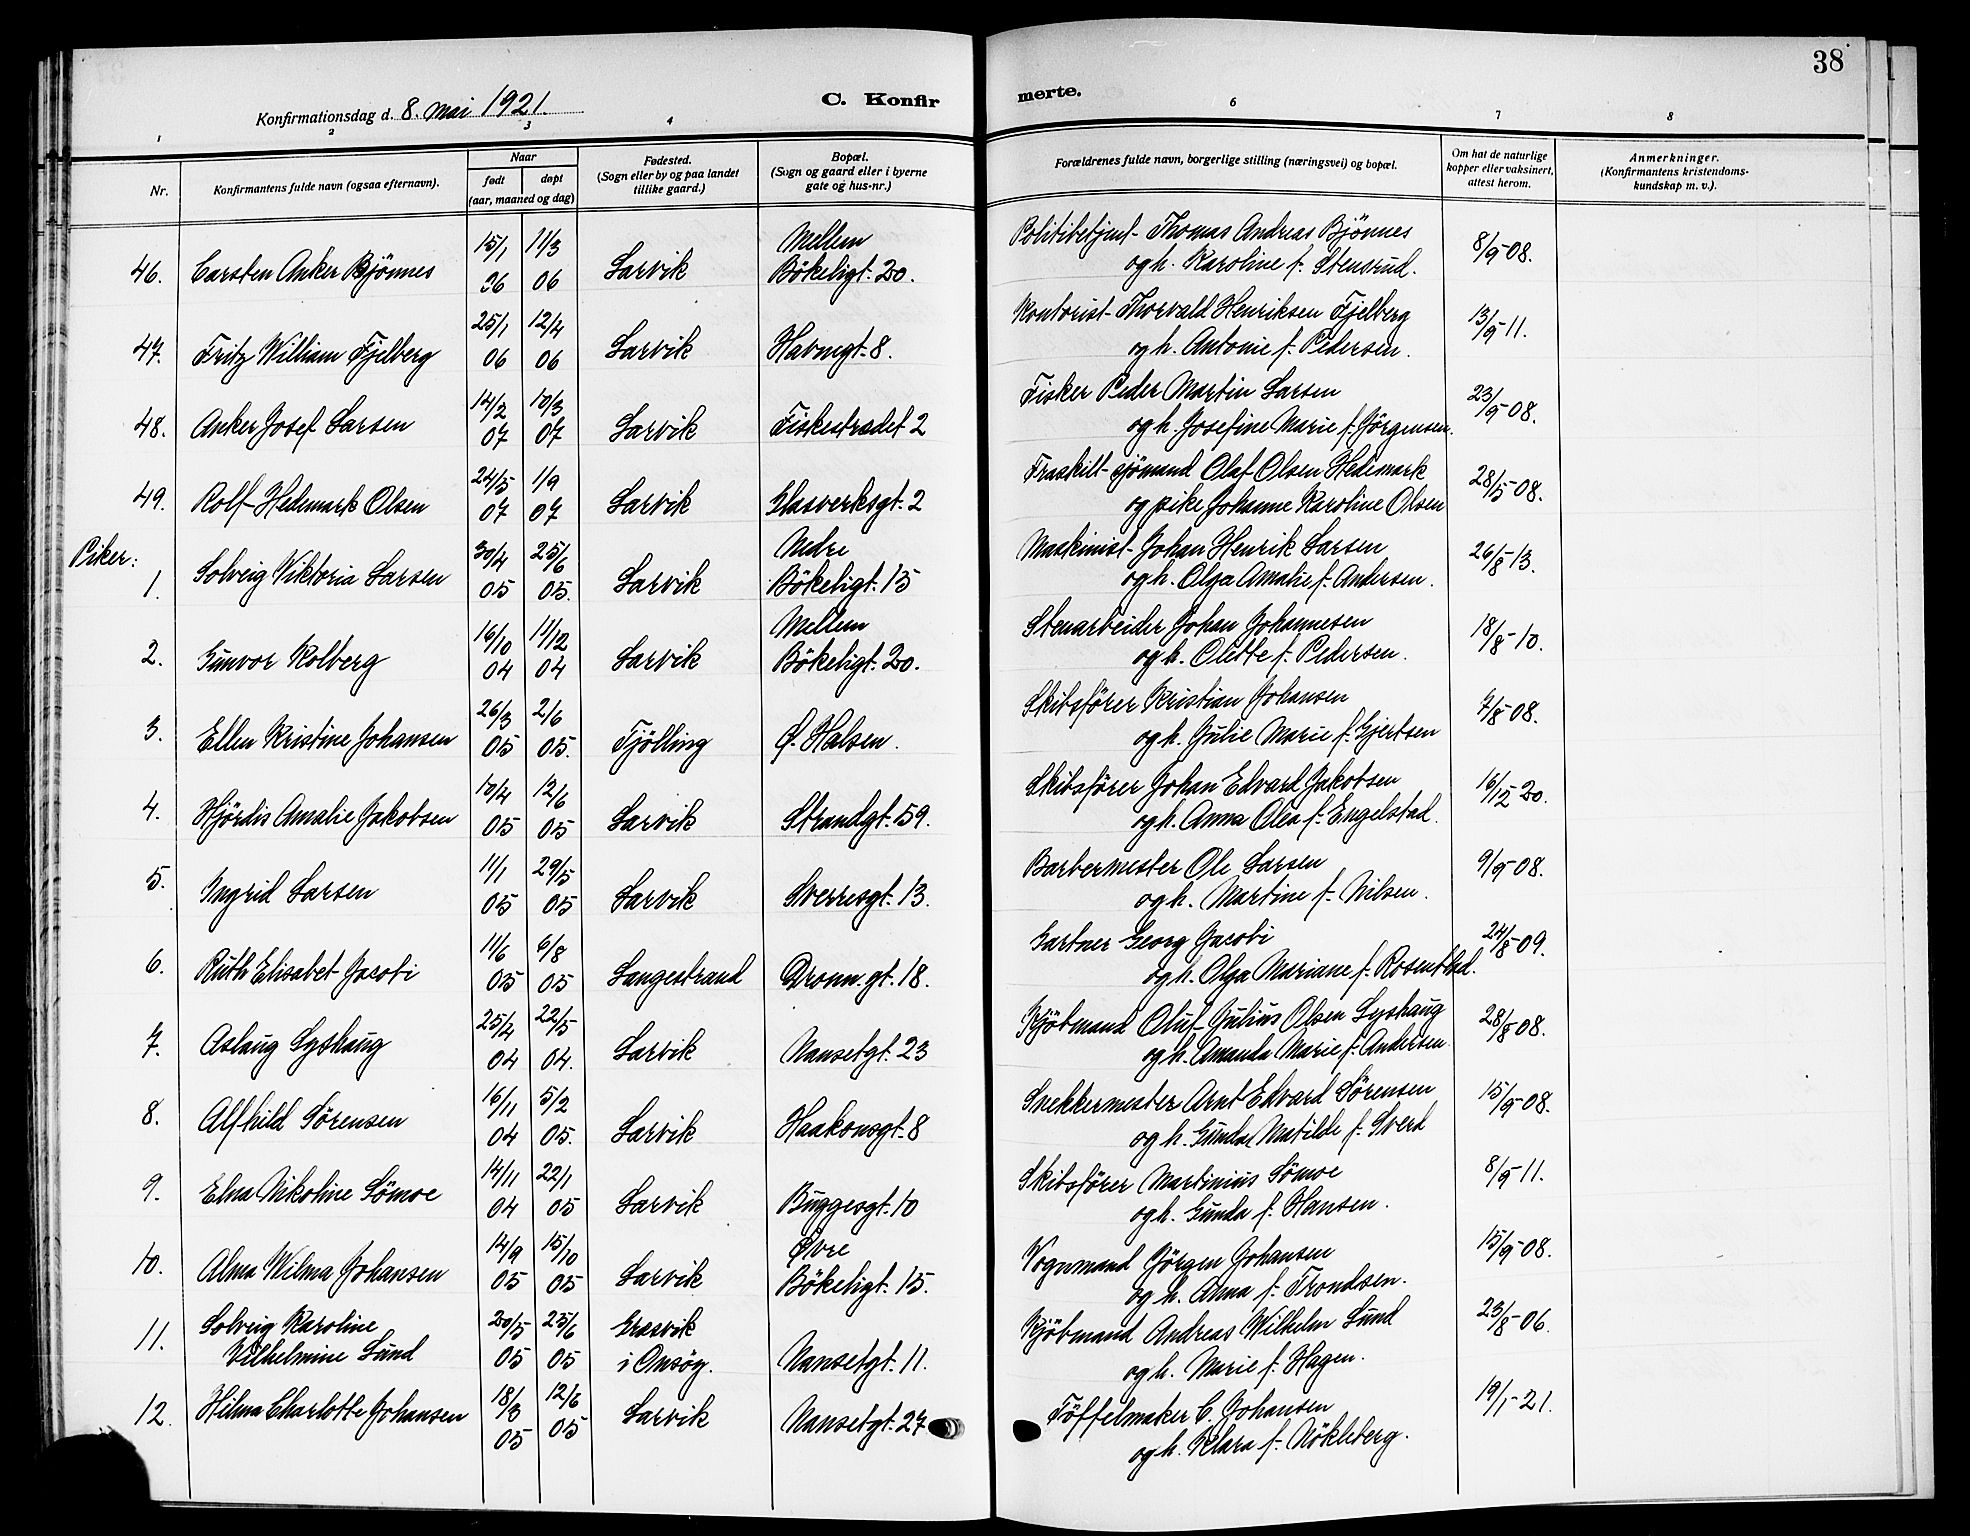 38
Konfirmationsdag d. 8. mai 1921.
C. Konfir
merte.
1 2 3 4 6 7 8
Nr.
Konfirmantens fulde navn (ogsaa efternavn).
Naar
født
døpt
(aar, maaned og dag)
Fødested.
(Sogn eller by og paa landet
tillike gaard.)
Bopæl.
(Sogn og gaard eller i byerne
gate og hus-nr.)
Forældrenes fulde navn, borgerlige stilling (næringsvei) og bopæl.
Om hat de naturlige
kopper eller vaksinert,
attest herom.
Anmerkninger.
(Konfirmantens kristendoms-
kundskap m. v.).
15/1 11/3 Mellem Politibetjent Thomas Andreas Bjönnes 8/9-08.
46. Carsten Anker Bjönnes 06 06 Larvik Bökeligt. 20. og h. Karoline f. Stensrud.
25/1 12/4 Kontorist Thorvald Henriksen Fjelberg 13/9-11.
47. Fritz William Fjelberg 06 06 Larvik Havnegt. 8. og h. Antonie f. Pedersen.
14/2 10/3 Fisker Peder Martin Larsen 23/9-08.
48. Anker Josef Larsen 07 07 Larvik Fiskestrædet 2 og h. Josefine Marie f. Jörgensen.
24/5 1/9 Fraskilt sjömand Olaf Olsen Hedemark 28/5-08.
49. Rolf Hedemark Olsen 07 07 Larvik Glasverksgt. 2 og pike Johanne Karoline Olsen
Piker:
30/4 25/6 Nedre Maskinist Johan Henrik Larsen 26/8-13.
1. Solveig Viktoria Larsen 05 05. Larvik Bökeligt. 15 og h. Olga Amalie f. Andersen.
16/10 11/12 Mellem Stenarbeider Johan Johannesen 18/8-10.
2. Gunvor Kolberg 04 04 Larvik Bökeligt. 20. og h. Olette f. Pedersen.
26/3 2/6 Skibsförer Kristian Johansen 7/8-08.
3. Ellen Kristine Johansen 05 05. Tjölling Ø. Halsen. og h. Julie Marie f. Gjertsen
10/4 12/6 Skibsförer Johan Edvard Jakobsen 16/12-20.
4. Hjördis Amalie Jakobsen 05 05 Larvik Strandgt. 59. og h. Anna Olea f. Engelstad.
11/1 29/5 Barbermester Ole Larsen 9/9-08.
5. Ingrid Larsen 05 05 Larvik Sverresgt. 13. og h. Martine f. Nilsen.
11/6 6/8 Gartner Georg Jacobi 24/8-09.
6. Ruth Elisabet Jacobi 05 05 Langestrand Dronn. gt. 18. og h. Olga Mariane f. Rosenblad.
25/4 22/5 Kjöbmand Oluf Julius Olsen Lyshaug 28/8-08.
7. Aslaug Lyshaug 04 04. Larvik Nansetgt. 23 og h. Amanda Marie f. Andersen.
16/11 5/2 Snekkermester Arnt Edvard Sörensen 15/9-08.
8. Alfhild Sörensen 04 05. Larvik Haakonsgt. 8 og h. Gunda Matilde f. Sverd
14/11 22/1 Skibsförer Martinius Sömoe 8/9-11.
9. Elna Nikoline Sömoe 04 05 Larvik Buggesgt. 10 og h. Gunda f. Hansen.
14/9 15/10 Øvre Vognmand Jörgen Johansen 15/9-08.
10. Alma Wilma Johansen 05 05 Larvik Bökeligt. 15. og h. Anna f. Trondsen.
Solveig Karoline 20/5 25/6 Græsvik Kjöbmand Andreas Wilhelm Lund 23/8-06.
11. Vilhelmine Lund 05 05 i Onsöy. Nansetgt. 11. og h. Marie f. Hagen.
12. Hilma Charlotte Johansen 18/3 12/6 Larvik Nansetgt. 27 Töffelmaker C. Johansen 19/1-21.
05 05 og h. Klara f. Nökleberg.